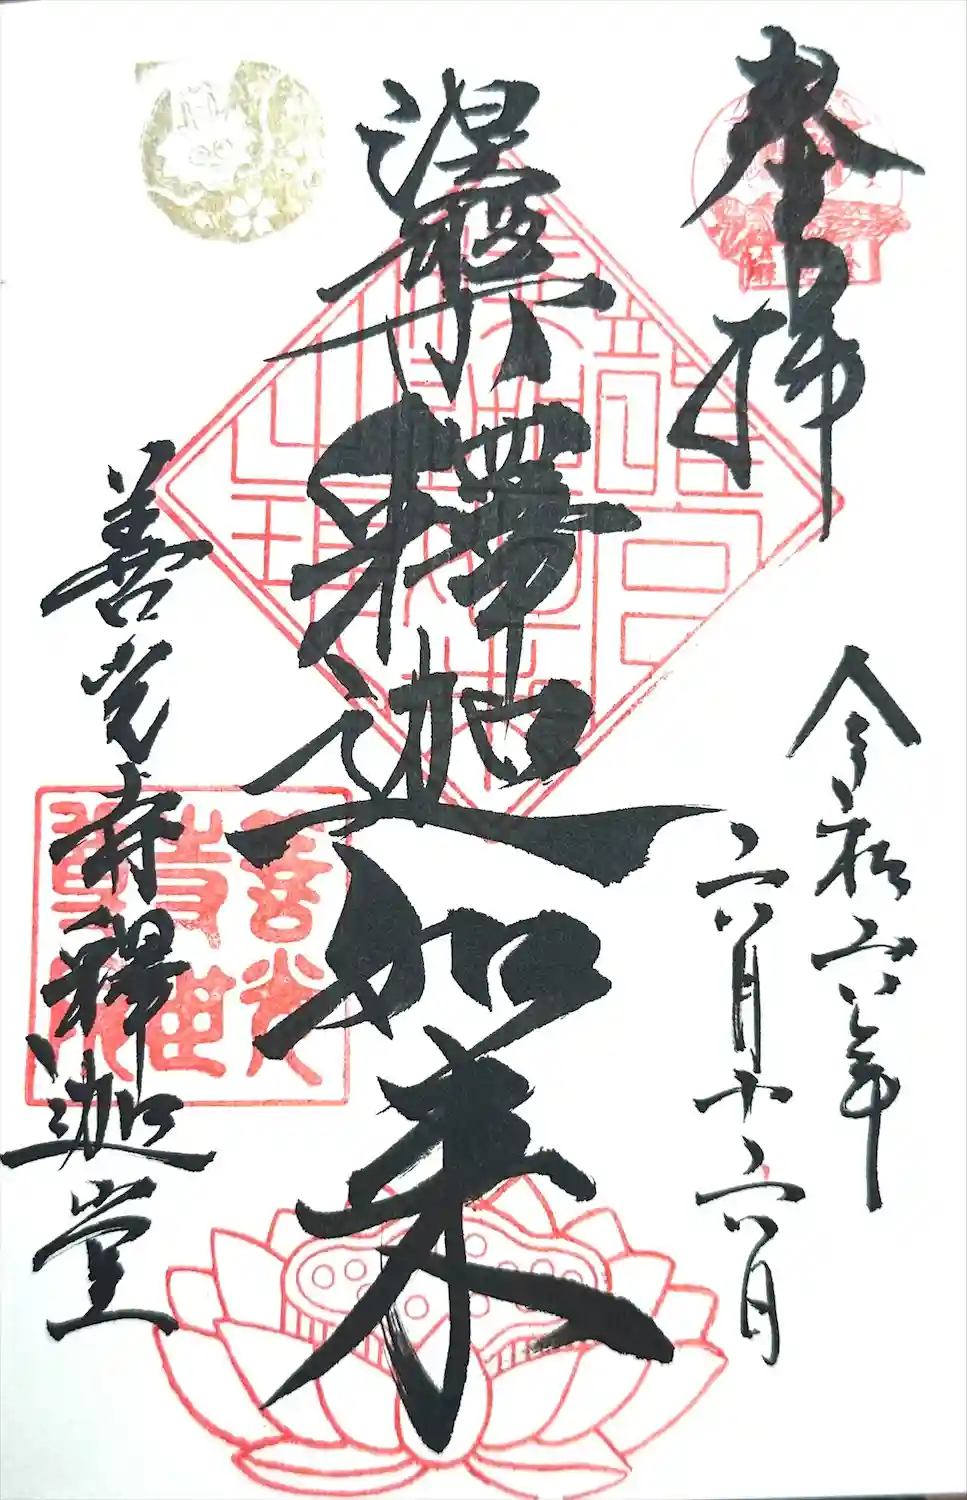 奉拝
令和六年
六月十六日
涅槃釋迦如来
善光寺釋迦堂